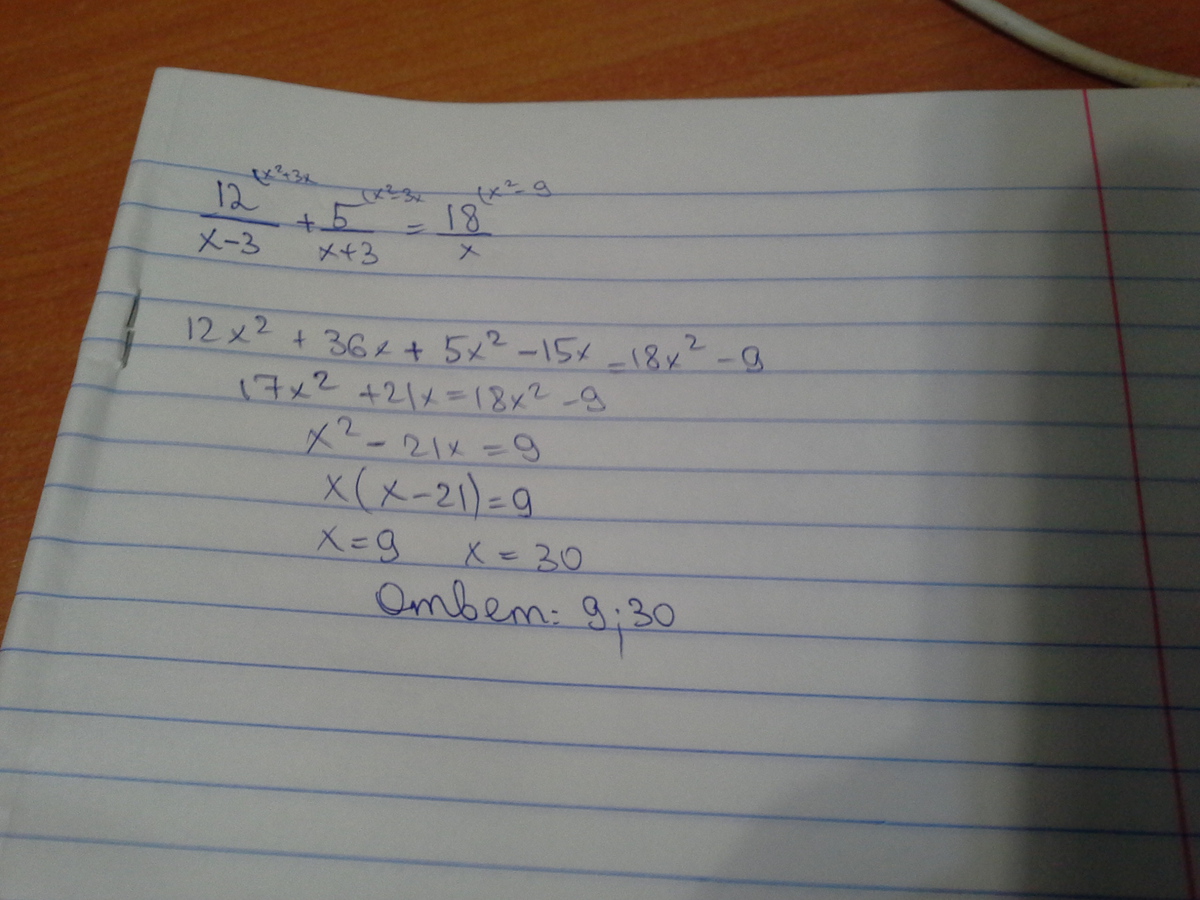 12(x²+3x + 5(x²-3x = 18(x²-9
x-3 x+3 x
12x² + 36x + 5x² -15x = 18x² - 9
17x² +21x = 18x² - 9
x² - 21x = 9
x(x-21)=9
x=9 x = 30
Ответ: 9;30